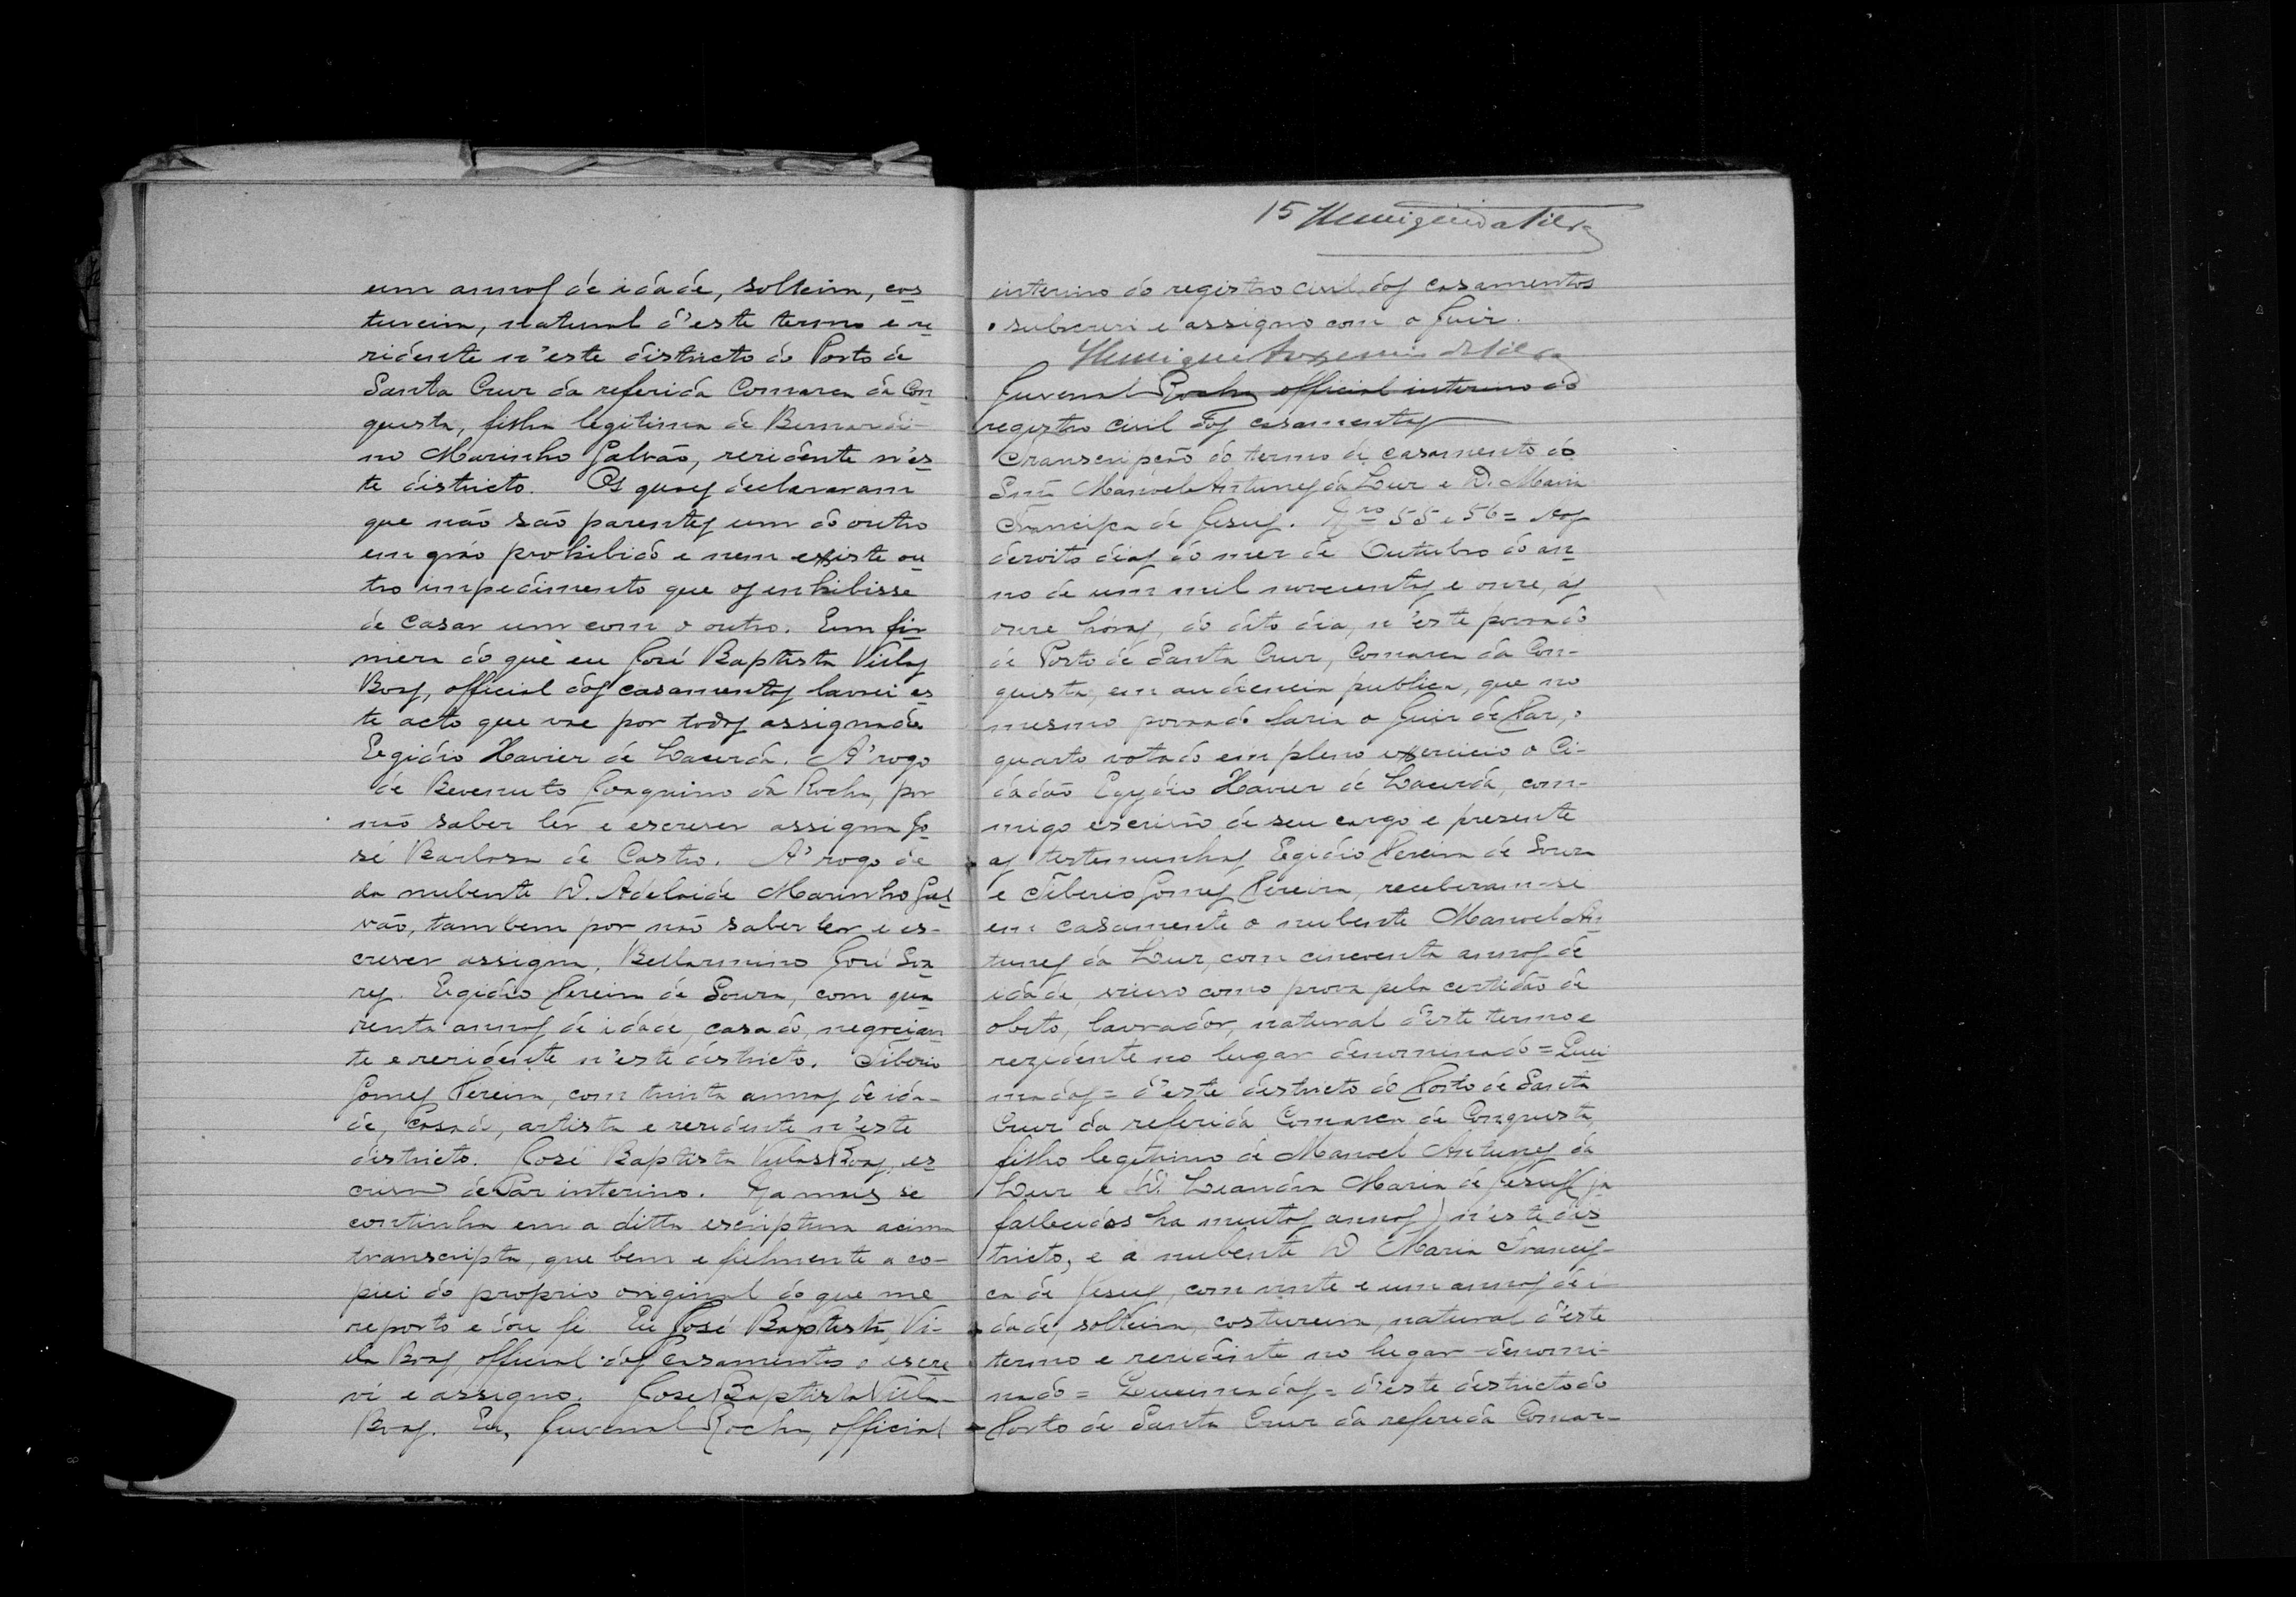 um annos de idade, solteira, cos
tureira, natural d'este termo e re
zidente n'este districto do Porto de
Santa Cruz da referida Comarca da Con
quista, filha legitima de Bernardi-
no Marinho Galvão, rezidente n'es
te districto. Os quaes declararam
que não são parentes um do outro
em gráo prohibido e nem existe ou
tro impedimento que os enhibisse
de casar um com o outro. Em fir
meza do que eu José Baptista Villas
Boas, official dos casamentos lavrei es
te acto que vae por todos assignado
Egidio Xavier de Lacerda. A' rogo
de Bevenuto Joaquino da Rocha, por
não saber ler e escrever assigna Jo
sé Barbosa de Castro. A' rogo de
da nubente D. Adelaide Marinho Gal
vão, tambem por não saber ler e es-
crever assigna, Bellarmino José Soa
res. Egidio Pereira de Souza, com qua
renta annos de idade, casado, negocian
te e rezidente n'este districto. Tiberio
Gomes Pereira, com trinta annos de ida-
de, Casado, artista e rezidente n'este
districto. José Baptista Villas Boas, es
crivão de Paz interino. Namais se
continha em a ditta escriptura acima
transcripta, que bem e fielmente a co-
piei do proprio original do que me
reporto e dou fé. Eu José Baptista Vi-
lla Boas, official dos Casamentos o escre
vi e assigno. José Baptista Villa
Boas. Eu, Juvenal Rocha, official
15 Henrique da Silva
interino do registro civil dos casamentos
subscrevi e assigno com o Juiz.
Henrique da Silva
Juvenal Rocha official interino do
registro civil dos casamentos
Transcripção do termo de casamento do
Snr. Manoel Antunes da Luz e D. Maria
Francisca de Jesus. Nro 55 e 56 = Aos
dezoito dias do mez de Outubro do an
no de um mil novecentos e onze, ás
onze horas, do dito dia, n'este povoado
de Porto de Santa Cruz, Comarca da Con-
quista, em audiencia publica, que no
mesmo povoado fazia o Juiz de Paz, o
quarto votado em pleno exercicio o Ci-
dadão Egydio Xavier de Lacerda, com-
migo escrivão de seu cargo e presente
as testemunhas Egidio Pereira de Souza
e Tiberio Gomes Pereira, receberam-se
em casamento o nubente Manoel An
tunes da Luz, com cincoenta annos de
idade, viuvo como prova pela certidão de
obito, lavrador, natural d'este termo e
rezidente no lugar denominado = Quei
madas = d'este districto do Porto de Santa
Cruz da referida Comarca de Conquista,
filho legitimo de Manoel Antunes da
Luz e D. Leandra Maria de Jesus (ja
fallecidos ha muitos annos) n'este dis
tricto, e a nubente D. Maria Francis-
ca de Jesus, com vinte e um annos de i-
dade, solteira, costureira, natural d'este
termo e rezidente no lugar denomi-
nado = Queimadas = d'este districto do
Porto de Santa Cruz da referida Comar-